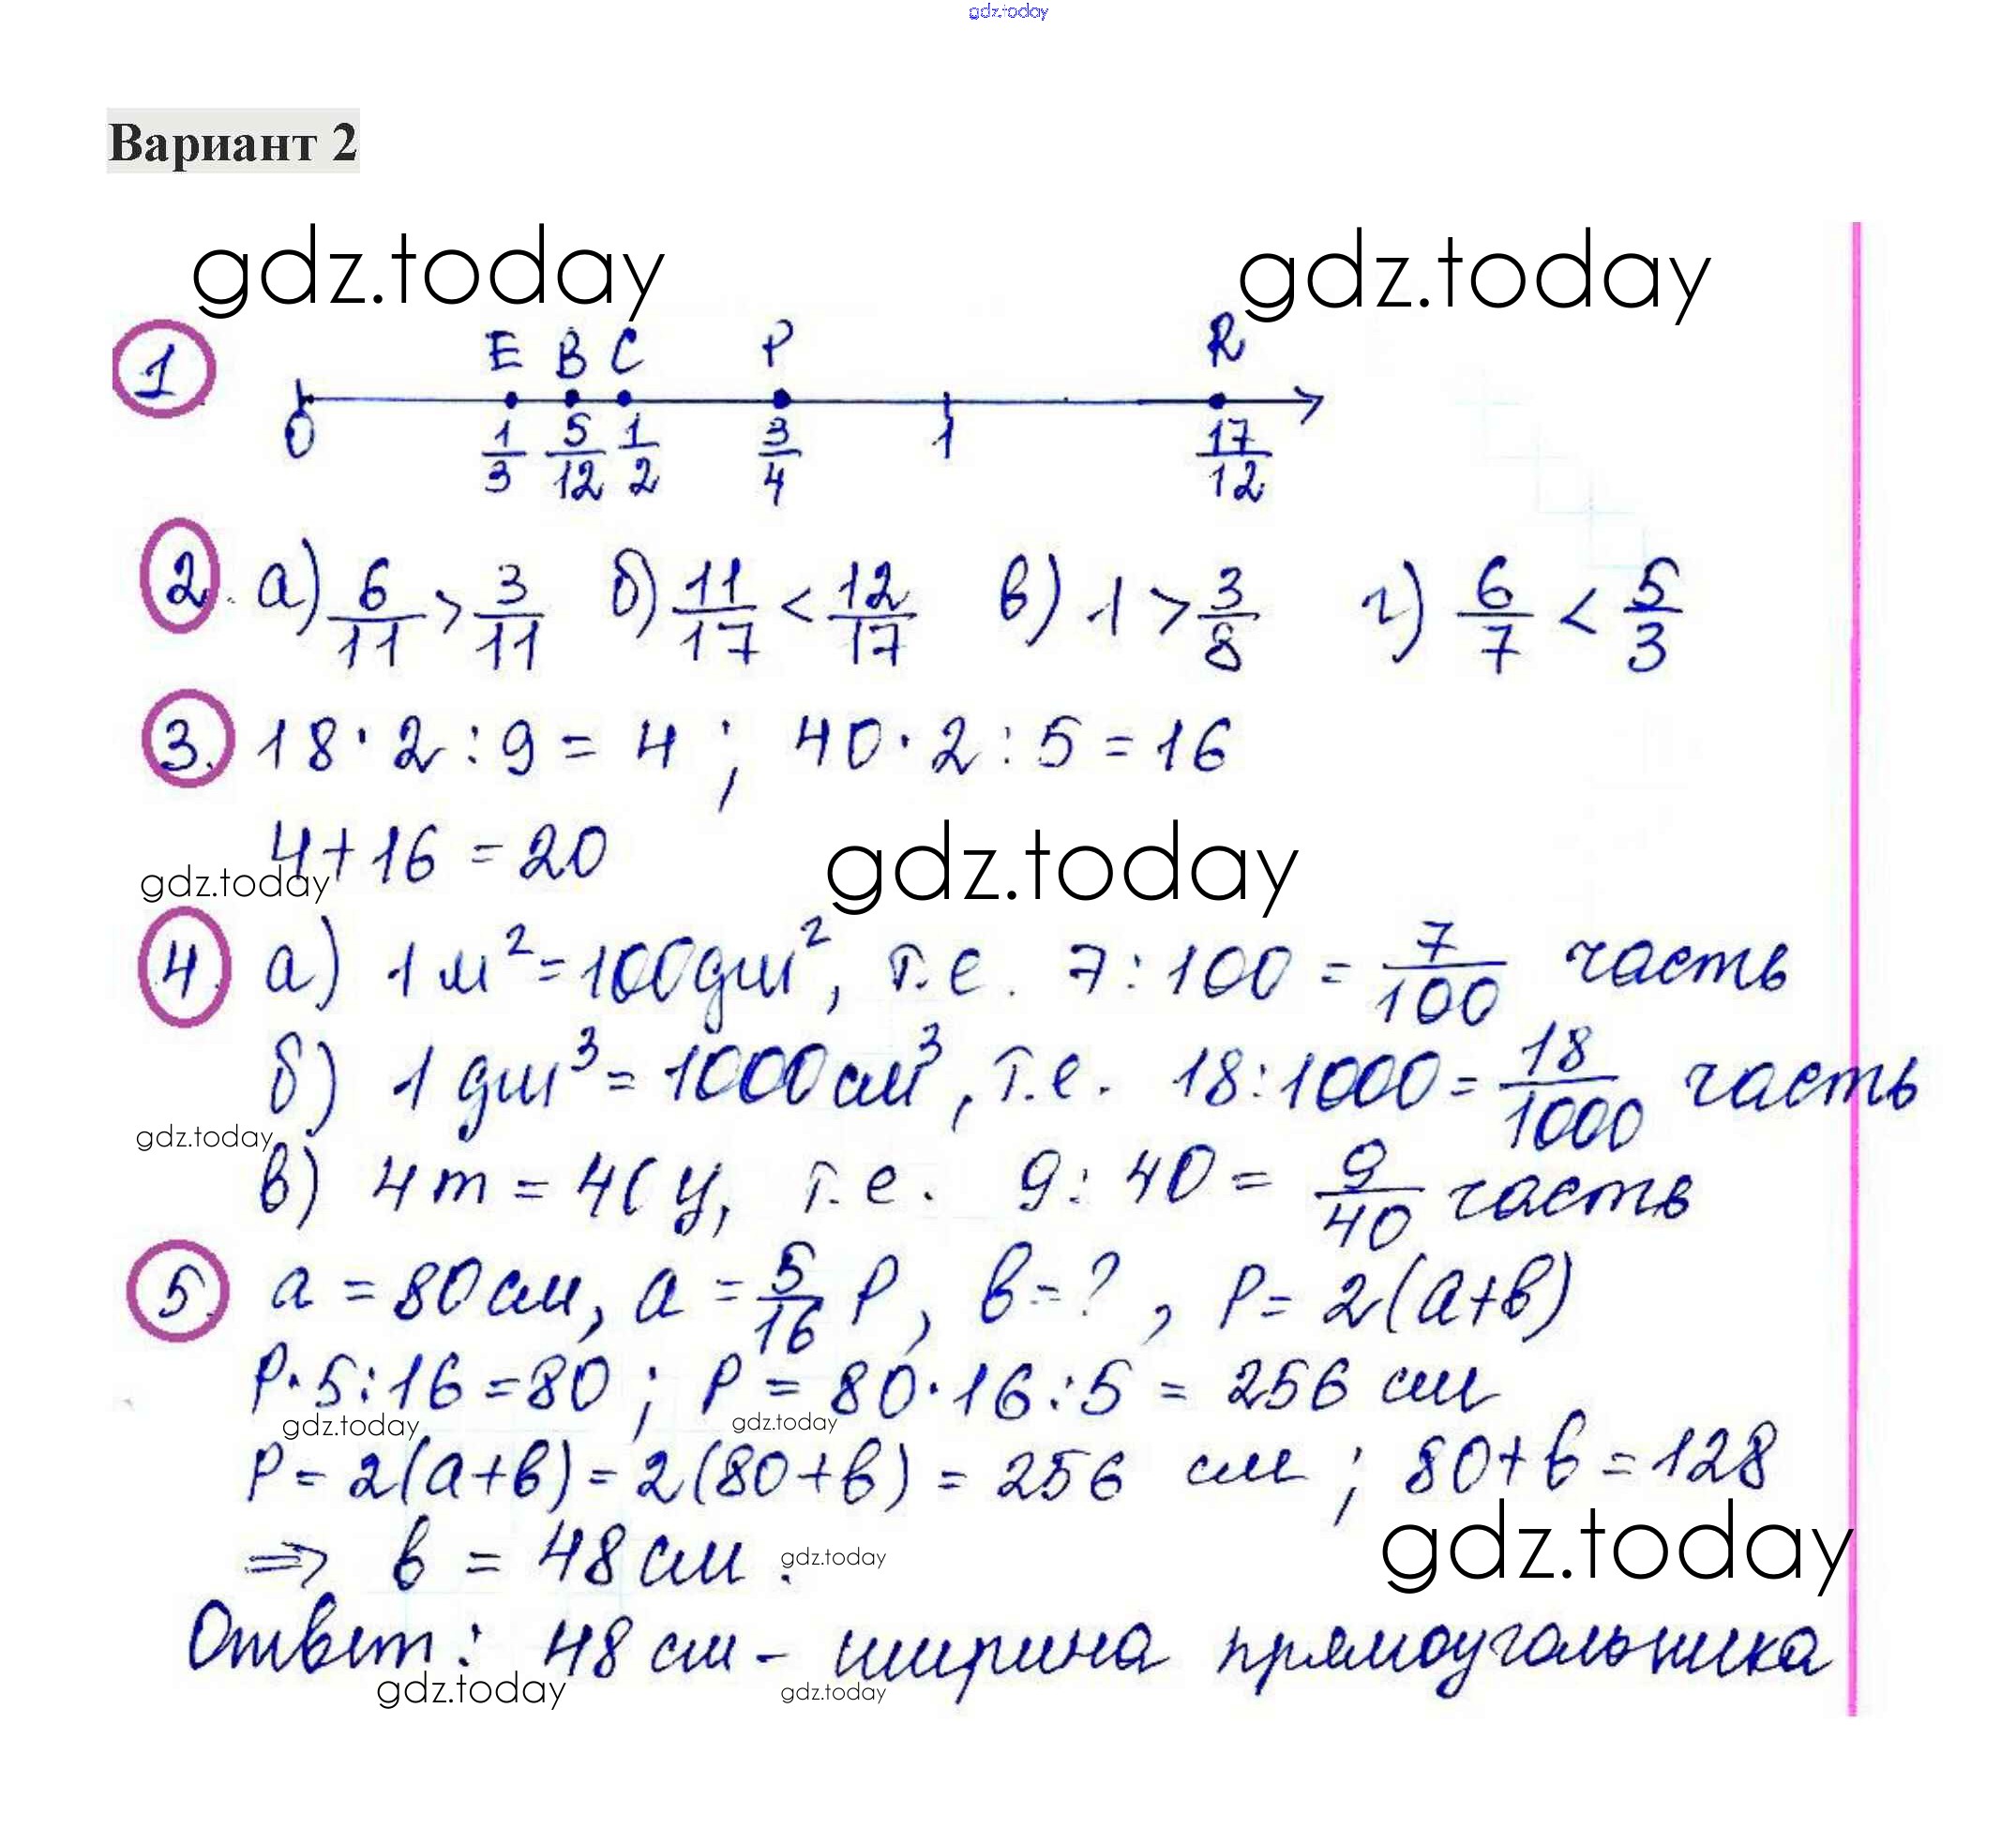 gdz.today
Вариант 2
gdz.today gdz.today
1. E B C P R
0 1/3 5/12 1/2 3/4 1 17/12
2. а) 6/11 > 3/11 б) 11/17 < 12/17 в) 1 > 3/8 г) 6/7 < 5/3
3. 18 · 2 : 9 = 4 ; 40 · 2 : 5 = 16
4 + 16 = 20
gdz.today gdz.today
4. а) 1 м² = 100 дм², т.е. 7 : 100 = 7/100 часть
б) 1 дм³ = 1000 см³, т.е. 18 : 1000 = 18/1000 часть
gdz.today
в) 4 т = 40 ц, т.е. 9 : 40 = 9/40 часть
5. a = 80 см, a = 5/16 P, в = ?, P = 2(a+в)
P · 5 : 16 = 80 ; P = 80 · 16 : 5 = 256 см
gdz.today gdz.today
P = 2(a+в) = 2(80+в) = 256 см ; 80 + в = 128
gdz.today
⇒ в = 48 см.
gdz.today
Ответ: 48 см - ширина прямоугольника
gdz.today gdz.today